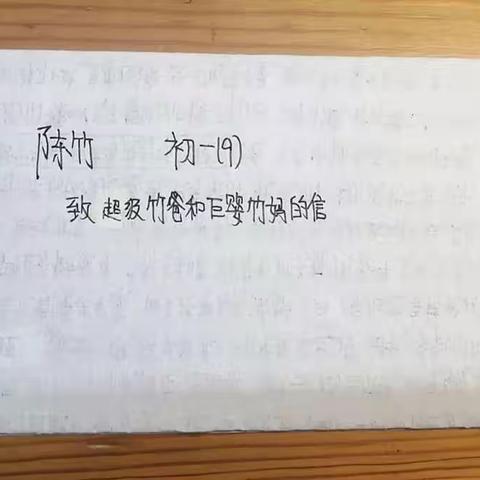 陈竹 初一(9)
致 超级竹爸和巨婴竹妈的信